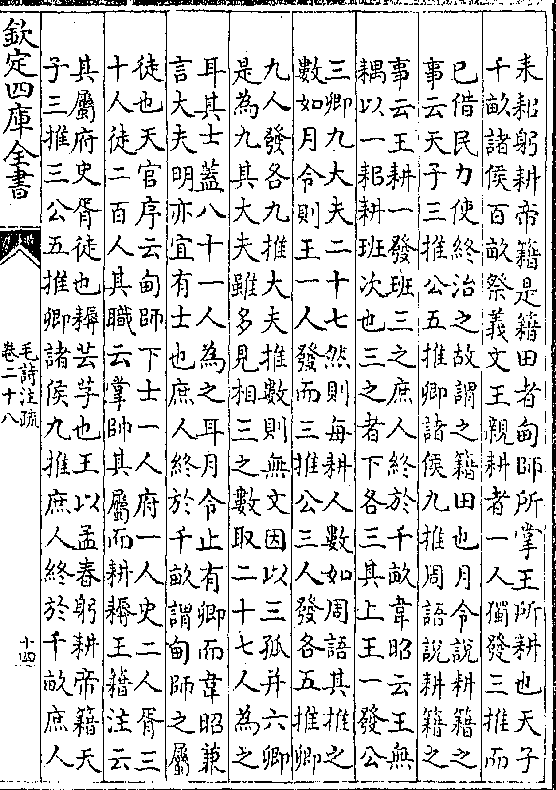 耒耜躬耕帝籍是籍田者甸師所掌王所耕也天子
千畝諸侯百畝祭義文王親耕者一人獨發三推而
已借民力使終治之故謂之籍田也月令說耕籍之
事云天子三推公五推卿諸侯九推周語說耕籍之
事云王耕一發班三之庶人終於千畝韋昭云王無
耦以一耜耕班次也三之者下各三其上王一發公
三卿九大夫二十七然則每耕人數如周語其推之
數如月令則王一人發而三推公三人發各五推卿
九人發各九推大夫推數則無文因以三孤并六卿
是為九其大夫雖多見相三之數取二十七人為之
耳其士蓋八十一人為之耳月令止有卿而韋昭兼
言大夫明亦宜有士也庶人終於千畝謂甸師之屬
徒也天官序云甸師下士一人府一人史二人胥三
十人徒二百人其職云掌帥其屬而耕耨王籍注云
其屬府史胥徒也耨芸芓也王以孟春躬耕帝籍天
子三推三公五推卿諸侯九推庶人終於千畝庶人
欽定四庫全書
毛詩注疏
卷二十八
十四